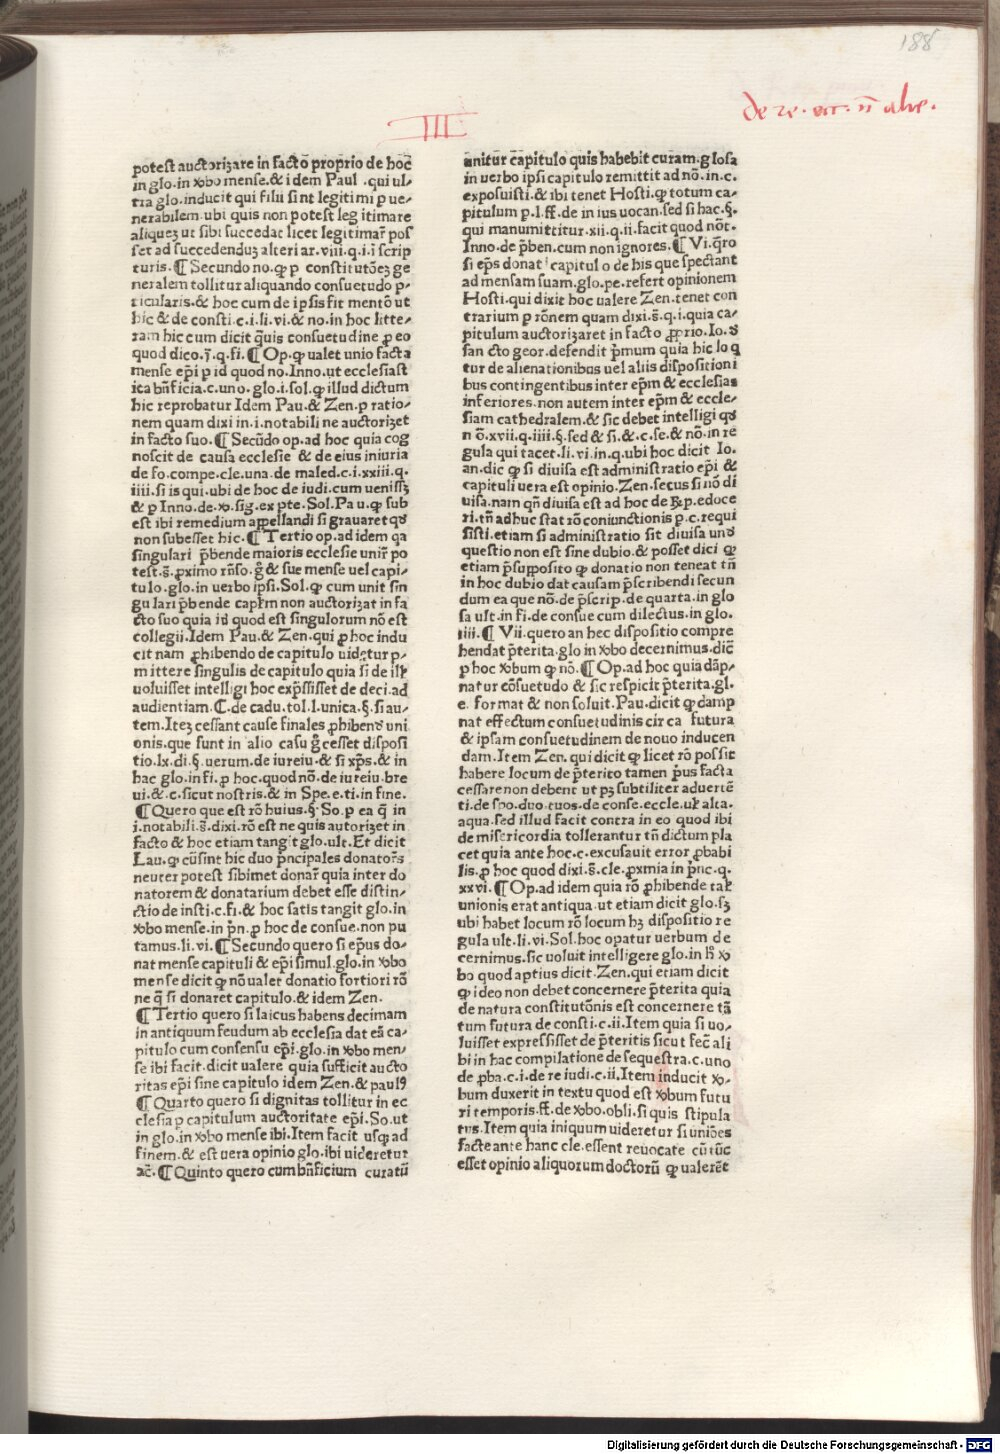 188
de re. ecc. n̄ alie.
III
potest auctorizare in facto proprio de hoc̄
in glo.in ꝟbo mense.& idem Paul .qui ul⸗
tra glo.inducit qui filii sint legitimi p ue⸗
nerabilem.ubi quis non potest legitimare
aliqueʒ ut sibi succedat licet legitimar̄ pos
set ad succedenduʒ alteri ar.viii.q.i.ī scrip
turis.¶ Secundo no.ꝙ p constitutōeʒ ge
neralem tollitur aliquando consuetudo p⸗
ticularis.& hoc cum de ipsis fit mentō ut
hic & de consti.c.i.li.vi.& no.in hoc litte⸗
ram hic cum dicit q̄uis consuetudine p eo
quod dico.j̄.q.fi.¶ Op.ꝙ ualet unio facta
mense ep̄i p id quod no.Inno.ut ecclesiast
ica bn̄ficia.c.uno.glo.i.sol.ꝙ illud dictum
hic reprobatur Idem Pau.& Zen.p ratio⸗
nem quam dixi in.i.notabili ne auctorizet
in facto suo.¶ Secūdo op.ad hoc quia cog
noscit de causa ecclesie & de eius iniuria
de fo.compe.cle.una.de maled.c.i.xxiii.q.
iiii.si is qui.ubi de hoc de iudi.cum uenissʒ
& p Inno.de.ꝟ.sig.ex pte.Sol.Pau.ꝙ sub
est ibi remedium appellandi si grauaret qd̄
non subesset hic.¶ Tertio op.ad idem qa
singulari p̄bende maioris ecclesie unir̄ po
test.s̄.ꝓximo rn̄so.g̊ & sue mense uel capi⸗
tulo.glo.in uerbo ipsi.Sol.ꝙ cum unit sin
gulari p̄bende capl̄m non auctorizat in fa
cto suo quia id quod est singulorum nō est
collegii.Idem Pau.& Zen.qui ꝓ hoc indu
cit nam ꝓhibendo de capitulo uidetur p⸗
mittere singulis de capitulo quia si de ill̄
uoluisset intelligi hoc exp̄ssisset de deci.ad
audientiam.C.de cadu.tol.l.unica.§.si au⸗
tem.Iteʒ cessant cause finales ꝓhibend̄ uni
onis.que sunt in alio casu g̊ cesset disposi
tio.lx.di.§.uerum.de iureiu.& si xp̄s.& in
hac glo.in fi.ꝓ hoc.quod nō.de iureiu.bre
ui.& c.sicut nostris.& in Spe.e.ti.in fine.
¶Quero que est rō huius.§.So.p ea q̄ in
i.notabili.s̄.dixi.rō est ne quis autorizet in
facto & hoc etiam tangit glo.ult.Et dicit
Lau.ꝙ cū sint hic duo p̄ncipales donator̄s
neuter potest sibimet donar̄ quia inter do
natorem & donatarium debet esse distin⸗
ctio de insti.c.fi.& hoc satis tangit glo.in
ꝟbo mense.in pn̄.ꝓ hoc de consue.non pu
tamus.li.vi.¶ Secundo quero si ep̄us do⸗
nat mense capituli & ep̄i simul.glo.in ꝟbo
mense dicit ꝙ nō ualet donatio fortiori rō
ne q̄ si donaret capitulo.& idem Zen.
¶ Tertio quero si laicus habens decimam
in antiquum feudum ab ecclesia dat eā ca⸗
pitulo cum consensu ep̄i.glo.in ꝟbo men⸗
se ibi facit.dicit ualere quia sufficit aucto
ritas ep̄i sine capitulo idem Zen.& paulꝰ
¶ Quarto quero si dignitas tollitur in ec
clesia p capitulum auctoritate ep̄i.So.ut
in glo.in ꝟbo mense ibi.Item facit usqʒ ad
finem.& est uera opinio glo.ibi uideretur
ac̄.¶ Quinto quero cum bn̄ficium curatū
unitur capitulo quis habebit curam.glosa
in uerbo ipsi capitulo remittit ad nō.in.c.
exposuisti.& ibi tenet Hosti.ꝙ totum ca⸗
pitulum p.l.ff.de in ius uocan.sed si hac.§.
qui manumittitur.xii.q.ii.facit quod nōt.
Inno.de p̄ben.cum non ignores.¶ Vi.q̄ro
si ep̄s donat capitulo de his que spectant
ad mensam suam.glo.pe.refert opinionem
Hosti.qui dixit hoc ualere Zen.tenet con
trarium p rōnem quam dixi.s̄.q.i.quia ca⸗
pitulum auctorizaret in facto ꝓprio.Io.d̄
sancto geor.defendit p̄mum quia hic loq
tur de alienationibus uel aliis dispositioni
bus contingentibus inter ep̄m & ecclesias
inferiores.non autem inter ep̄m & eccle⸗
siam cathedralem.& sic debet intelligi qd̄
n ō.xvii.q.iiii.§.sed & si.& .c.se.& nō.in re
gula qui tacet.li.vi.in.q.ubi hoc dicit Io.
an.dic ꝙ si diuisa est administratio ep̄i &
capituli uera est opinio.Zen.secus si nō di
uisa.nam qn̄ diuisa est ad hoc de p.edoce
ri.tn̄ adhuc stat rō coniunctionis p.c.requi
sisti.etiam si administratio sit diuisa und̄
questio non est sine dubio.& posset dici ꝙ
etiam p̄supposito ꝙ donatio non teneat tn̄
in hoc dubio dat causam p̄scribendi secun
dum ea que nō.de p̄scrip.de quarta.in glo
sa ult.in fi.de consue cum dilectus.in glo.
iiii.¶ Vii.quero an hec dispositio compre
hendat p̄terita.glo in ꝟbo decernimus.dic̄
p hoc ꝟbum ꝙ nō.¶ Op.ad hoc quia dāp⸗
natur cōsuetudo & sic respicit p̄terita.gl.
e format & non soluit.Pau.dicit ꝙ damp
nat effectum consuetudinis circa futura
& ipsam consuetudinem de nouo inducen
dam.Item Zen.qui dicit ꝙ licet rō possit
habere locum de p̄terito tamen p̄us facta
cessare non debent ut pʒ subtiliter aduertē
ti.de spo.duo.tuos.de conse.eccle.ul̄ alta.
aqua.sed illud facit contra in eo quod ibi
de misericordia tollerantur tn̄ dictum pla
cet quia ante hoc.c.excusauit error ꝓbabi
lis.ꝓ hoc quod dixi.s̄.cle.ꝓxmia in p̄nc.q.
xxvi.¶ Op.ad idem quia rō ꝓhibende tal̄
unionis erat antiqua.ut etiam dicit glo.sʒ
ubi habet locum rō locum hʒ dispositio re
gula ult.li.vi.Sol.hoc opatur uerbum de
cernimus.sic uoluit intelligere glo.in h̊ ꝟ
bo quod aptius dicit.Zen.qui etiam dicit
ꝙ ideo non debet concernere p̄terita quia
de natura constitutōnis est concernere tā
tum futura de consti.c.ii.Item quia si uo⸗
luisset expressisset de p̄teritis sicut fec̄ ali
bi in hac compilatione de sequestra.c.uno
de ꝓba.c.i.de re iudi.c.ii.Item inducit ꝟ⸗
bum duxerit in textu quod est ꝟbum futu
ri temporis.ff.de ꝟbo.obli.si quis stipula
tus.Item quia iniquum uideretur si uniōes
facte ante hanc cle.essent reuocate cū tūc
esset opinio aliquorum doctorū ꝙ ualerēt
Digitalisierung gefördert durch die Deutsche Forschungsgemeinschaft - DFG